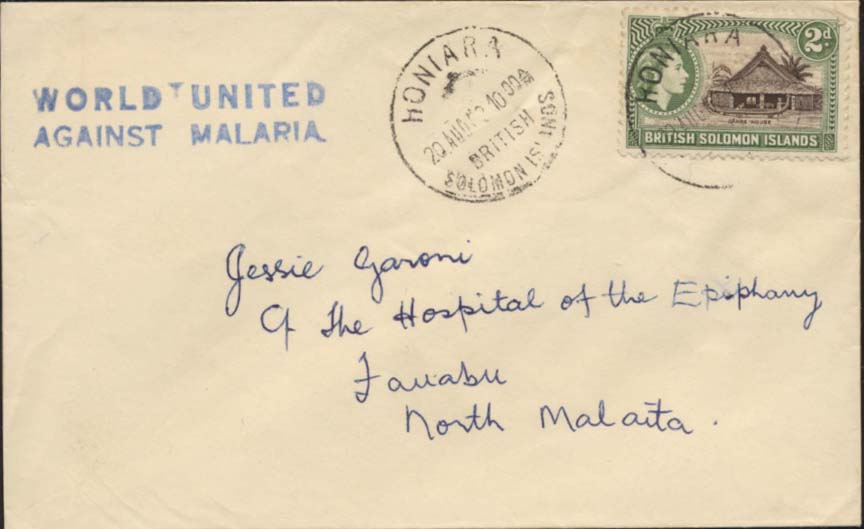 WORLD UNITED
AGAINST MALARIA
HONIARA
20 AUG 10 00A
BRITISH
SOLOMON IS'LNDS
HONIARA
2d
BRITISH SOLOMON ISLANDS
Jessie Garoni
C/- The Hospital of the Epiphany
Fauabu
North Malaita.